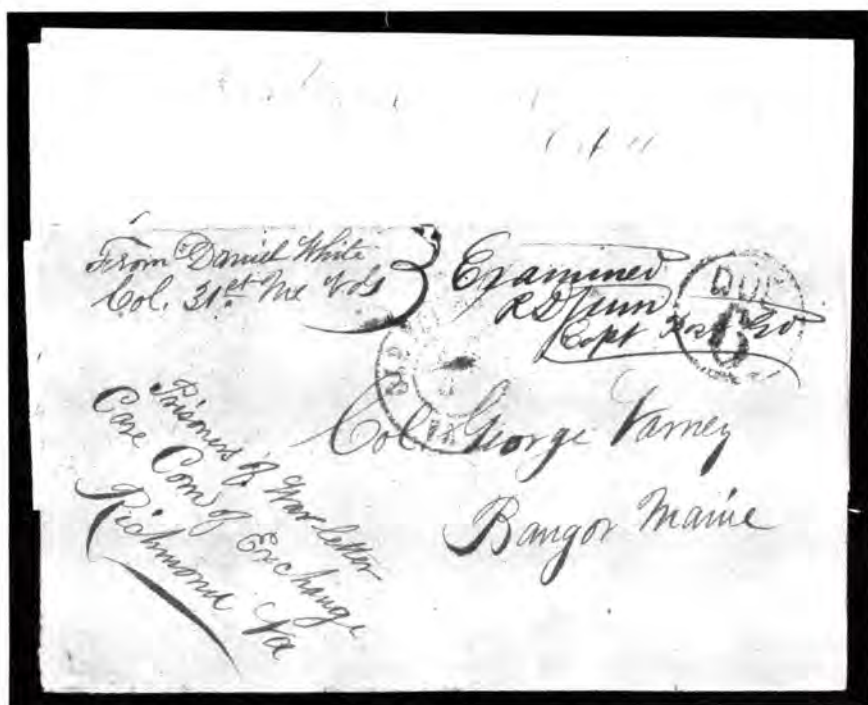 From Daniel White
Col. 31st Me Vols
Examined
Capt
DUE
6
Col. George Varney
Bangor Maine
Prisoners of War letter
Care Com of Exchange
Richmond Va